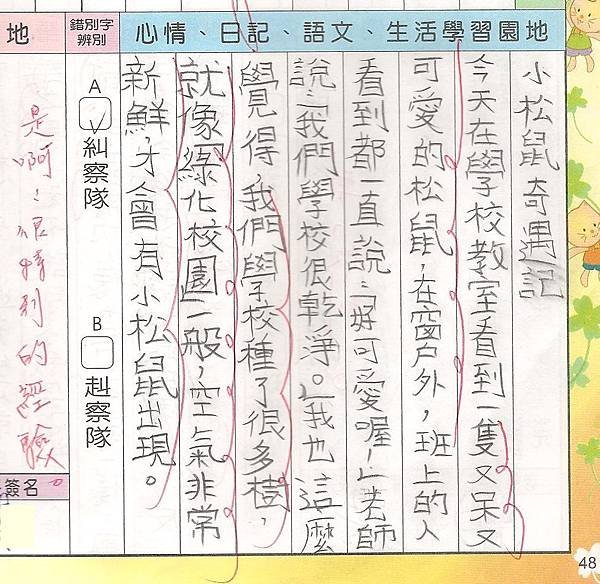 心情、日記、語文、生活學習園地
小松鼠奇遇記
今天在學校教室看到一隻又呆又
可愛的松鼠,在窗戶外,班上的人
看到都一直說:「好可愛喔!」老師
說:「我們學校很乾淨。」我也這麼
覺得,我們學校種了很多樹,
就像綠化校園一般,空氣非常
新鮮,才會有小松鼠出現。
錯別字
辨別
A ✓ 糾察隊
B 赳察隊
地
是啊!很特別的經驗
簽名
48